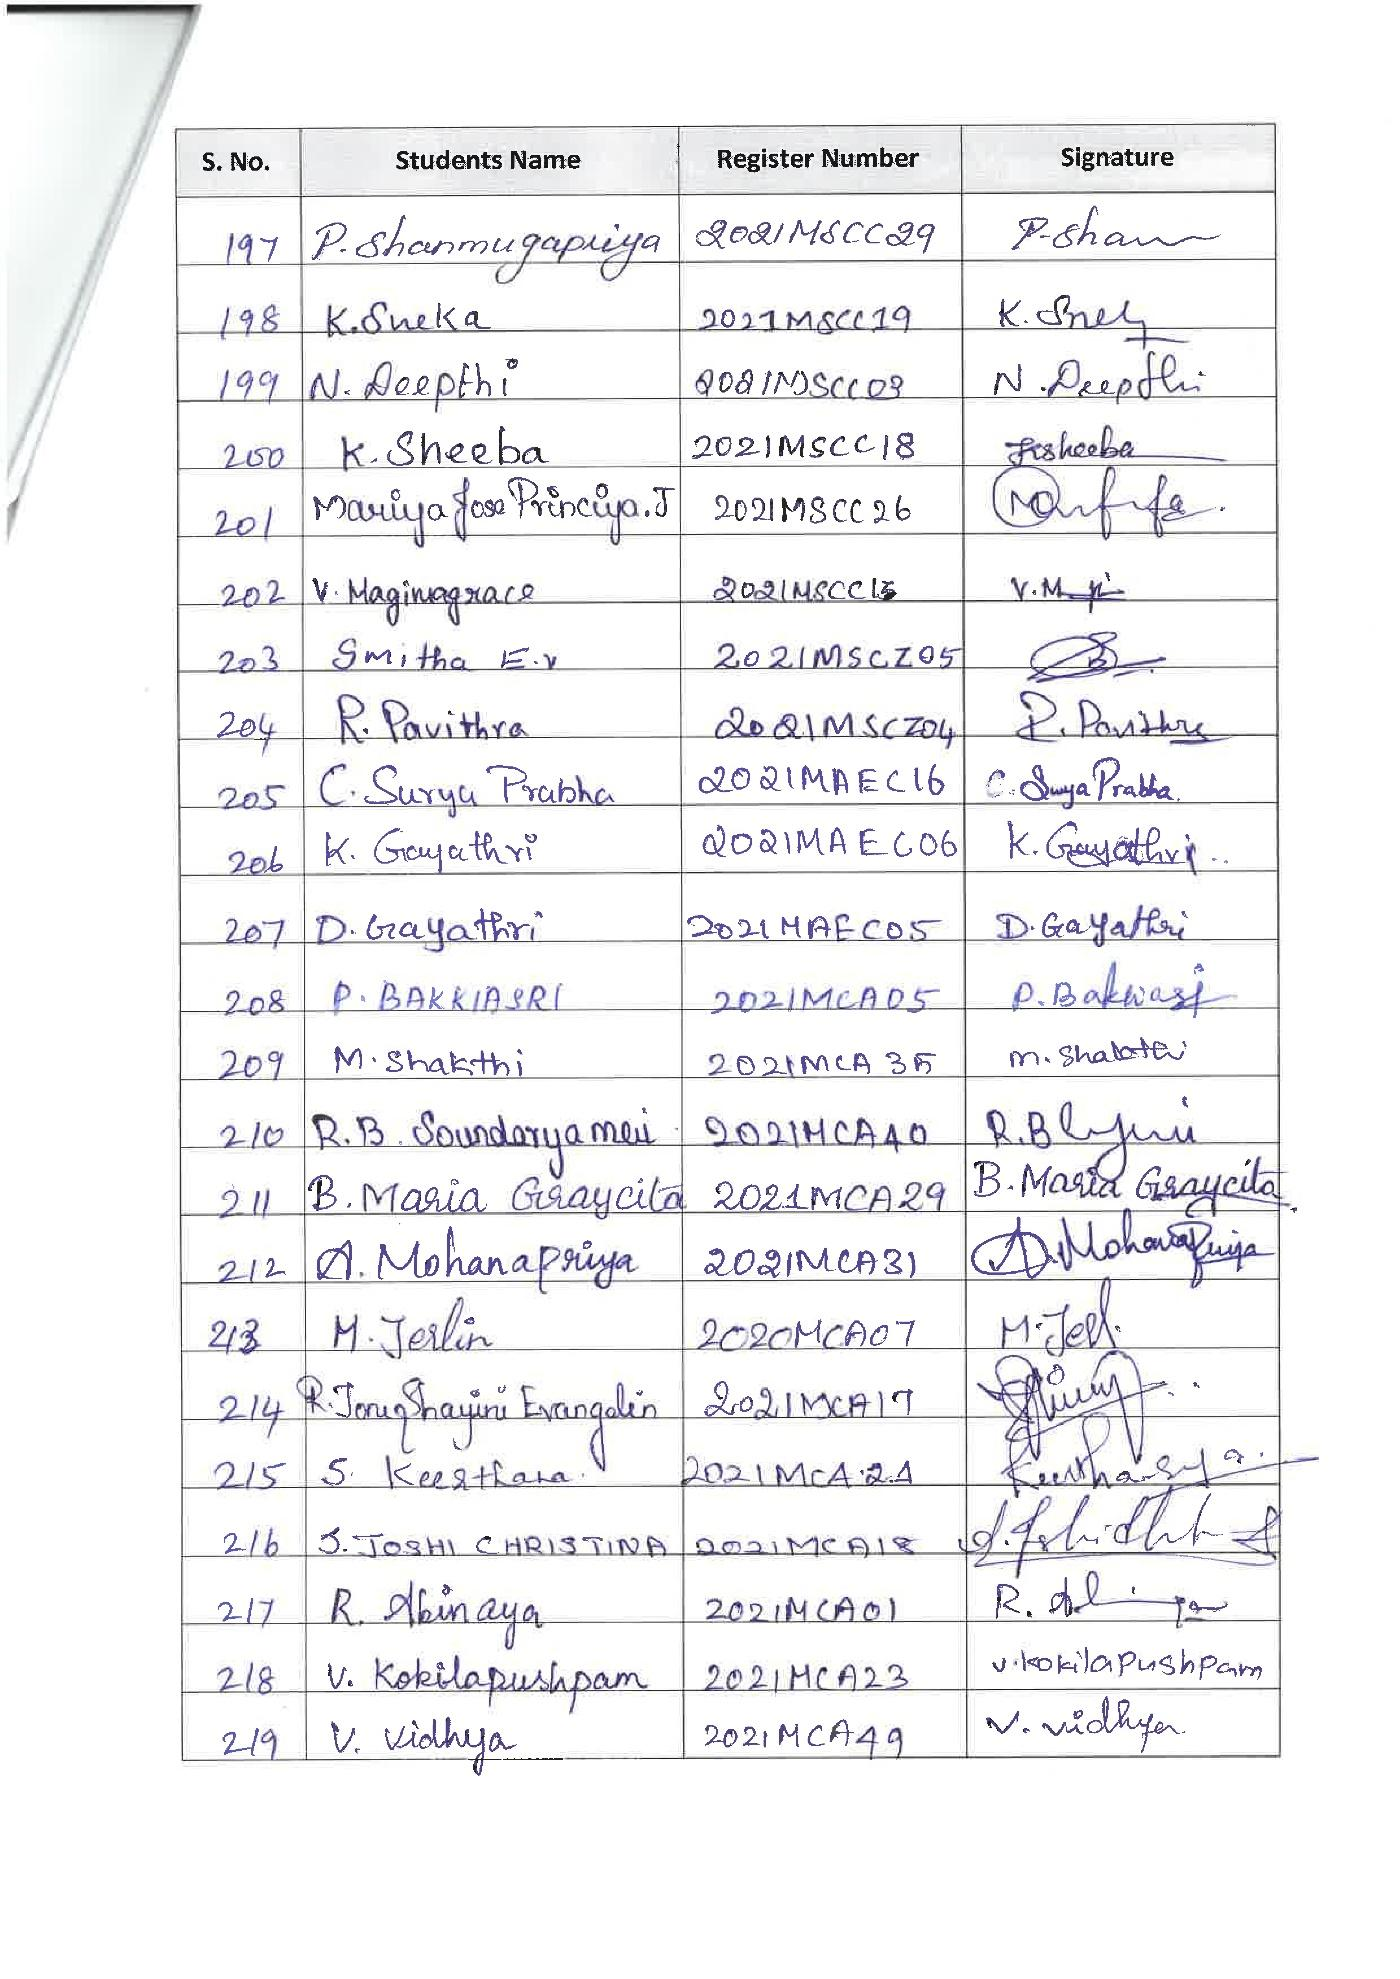 S. No. Students Name Register Number Signature
197 P. Shanmugapriya 2021MSCC29 P. Sha
198 K. Sneka 2021MSCC19 K. Sne
199 N. Deepthi 2021MSCC03 N. Deepthi
200 K. Sheeba 2021MSCC18 Ksheeba
201 Mariya Jose Princiya. J 2021MSCC26
202 V. Maginagrace 2021MSCC15 V. M
203 Smitha E.V 2021MSCZ05
204 R. Pavithra 2021MSCZ04 R. Pavithra
205 C. Surya Prabha 2021MAEC16 C. Surya Prabha.
206 K. Gayathri 2021MAEC06 K. Gayathri..
207 D. Gayathri 2021MAEC05 D. Gayathri
208 P. BAKKIASRI 2021MCA05 P. Bakkiasri
209 M. Shakthi 2021MCA35 M. Shakthi
210 R.B. Soundaryameri 2021MCA40 R.B
211 B. Maria Graycita 2021MCA29 B. Maria Graycita.
212 A. Mohanapriya 2021MCA31 A. Mohanapriya
213 M. Jerlin 2020MCA07 M. Jerl.
214 R. Evangalin 2021MCA17
215 S. Keerthana. 2021MCA24
216 S. JOSHI CHRISTINA 2021MCA18
217 R. Abinaya 2021MCA01 R. Abi
218 V. Kokilapushpam 2021MCA23 V. Kokilapushpam
219 V. Vidhya 2021MCA49 V. Vidhya.